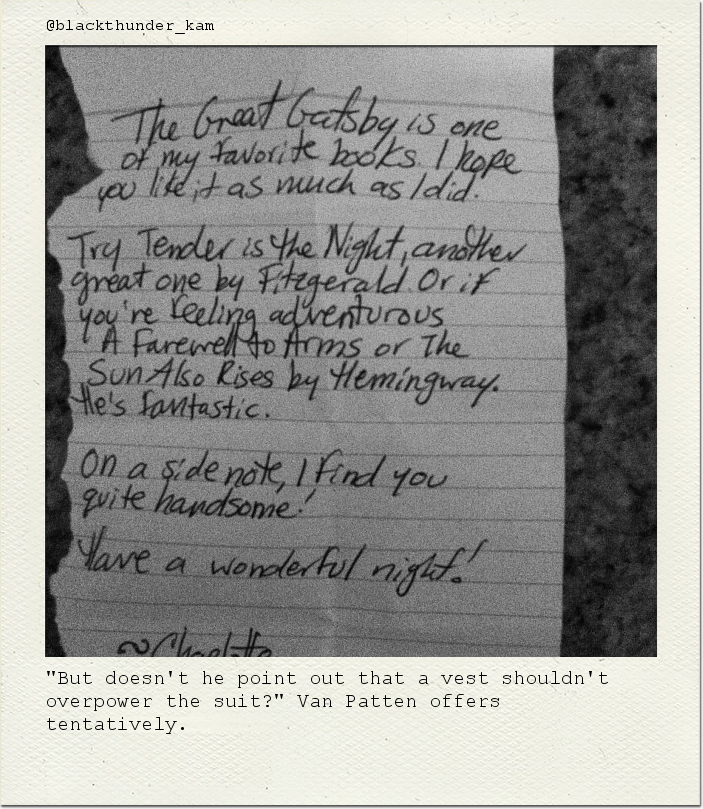 @blackthunder_kam
The Great Gatsby is one
of my favorite books. I hope
you like it as much as I did.
Try Tender is the Night, another
great one by Fitzgerald. Or if
you're feeling adventurous
A Farewell to Arms or The
Sun Also Rises by Hemingway.
He's fantastic.
On a side note, I find you
quite handsome!
Have a wonderful night!
~Charlotte
"But doesn't he point out that a vest shouldn't
overpower the suit?" Van Patten offers
tentatively.